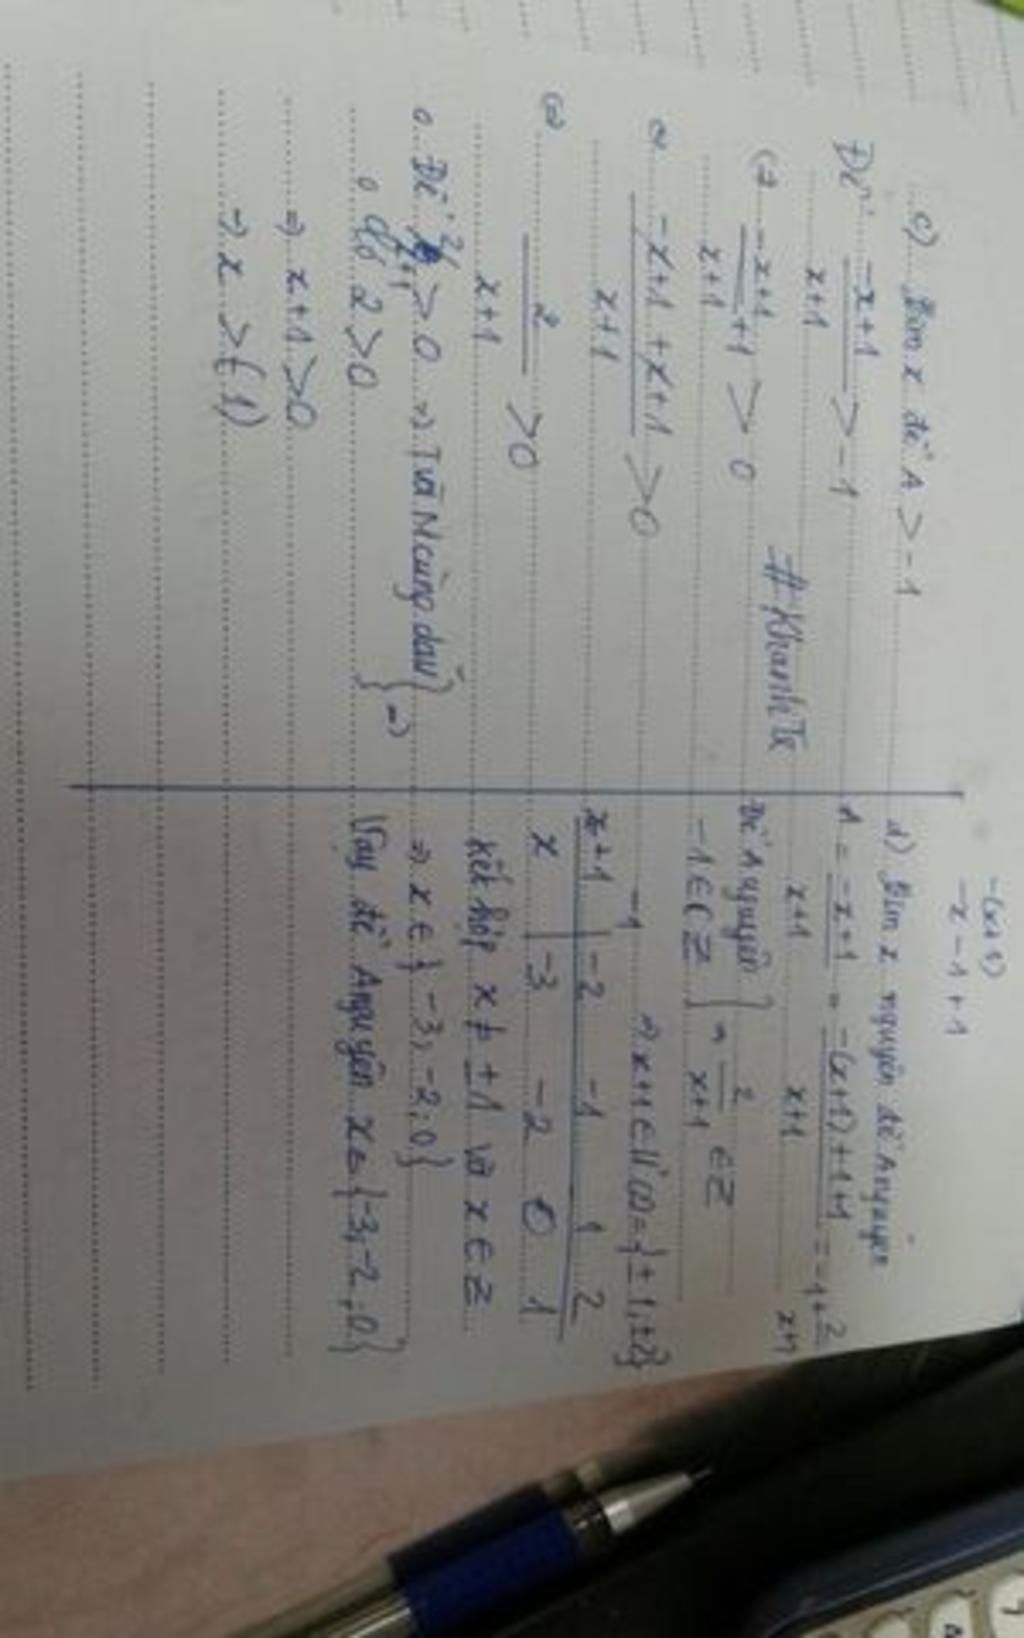 c) Tìm x để A > -1
Để \frac{-x+1}{x+1} > -1
(=) \frac{-x+1}{x+1} + 1 > 0
#KhanhTK
(=) \frac{-x+1+x+1}{x+1} > 0
(=) \frac{2}{x+1} > 0
Để \frac{2}{x+1} > 0 => T và M cùng dấu } =>
do 2 > 0
=> x+1 > 0
=> x > (-1)
-(x+1)
-x-1+1
d) Tìm x nguyên để A nguyên
A = \frac{-x+1}{x+1} = \frac{-(x+1)+1+1}{x+1} = -1+\frac{2}{x+1}
Để A nguyên } => \frac{2}{x+1} ∈ Z
-1 ∈ Z
=> x+1 ∈ Ư(2) = {±1, ±2}
x+1 | -2 -1 1 2
x | -3 -2 0 1
kết hợp x ≠ ±1 và x ∈ Z
=> x ∈ {-3, -2, 0}
Vậy để A nguyên x = {-3, -2, 0}